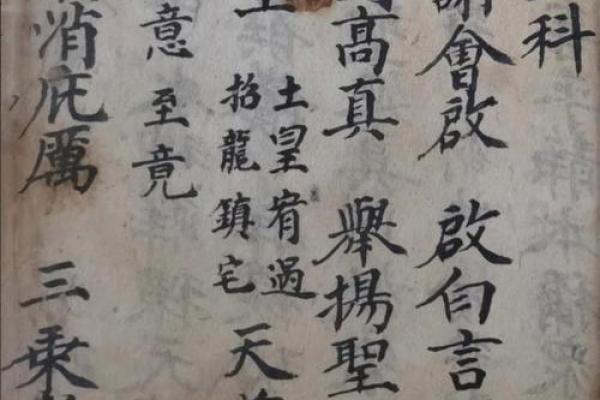 科
會啟 啟白言
高真 舉揚聖
土皇宥過
招龍鎮宅
天
意至竟
消庇厲 三乘